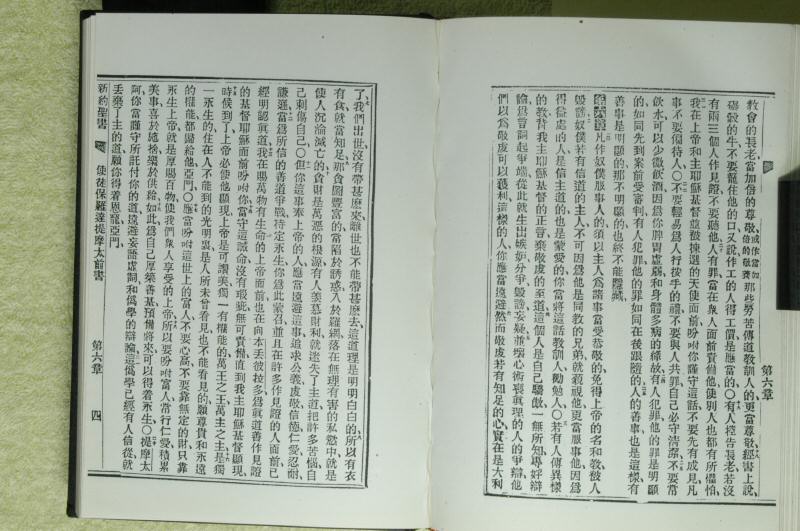 第六章
教會的長老當加倍的尊敬、或作當加倍的敬養那些勞苦傳道教訓人的、更當尊敬、經書上說、
碾穀的牛不要籠住他的口、又說作工的人得工價是應當的、○有人控告長老若沒
有兩三個人作見證不要聽他、人有罪當在衆人面前責備他使別人也都有所懼怕、
我在上帝和主耶穌基督並被揀選的天使面前吩咐你謹守這話不要先有成見凡
事不要偏待人、○不要輕易爲人行按手的禮不要與人共罪自己必守清潔、不要常
飲水可以少微飲酒因爲你脾胃虛弱和身體多病的緣故、有人犯罪他的罪是明顯
的如同先到案前受審判有人犯罪他的罪如同在後跟隨的、人的善事也是這樣、有
善事是明顯的那不明顯的也終不能隱藏、
第六章凡作奴僕服事人的、須以主人爲諸事當受恭敬的、免得上帝的名和教被人
毀謗、奴僕若有信道的主人不可因爲他是同教的兄弟、就藐視他更當服事他因爲
得益處的人是信主道的也是蒙愛的、你當將這話教訓人勸勉人、○若有人傳異樣
的教背我主耶穌基督的正言棄敬虔的至道、這個人是自己驕傲一無所知專好辯
論爲言詞起爭端從此就生出嫉妬分爭毀謗妄疑並壞心術喪眞理的人的爭辯他
們以爲敬虔可以獲利、這樣的人你應當遠避、然而敬虔若有知足的心實在是大利
了、我們出世沒有帶甚麼來、離世也不能帶甚麼去、這道理是明明白白的、所以有衣
有食就當知足、那貪圖豐富的當陷於誘惑入於羅網落在無理有害的私慾中就是
使人沉淪滅亡的、貪財是萬惡的根源有人羡慕財利就迷失了主道把許多苦惱自
己刺傷自己、○但你這事奉上帝的人應當遠避這事、追求公義虔敬信德仁愛忍耐
謙遜當爲所信的善道爭戰持定永生你爲此蒙召並且在許多作見證的人面前已
經明認眞道、我在賜萬物有生命的上帝面前也在向本丢彼拉多爲眞道善作見證
的基督耶穌面前吩咐你當守這誡命沒有瑕疵無可責備直到我主耶穌基督顯現、
時候到了、上帝必使他顯現、上帝是可讚美獨一有權能的萬王之王萬主之主是獨
一永生的住在人不能到的光明裏是人所未曾看見也不能看見的願尊貴和永遠
的權能都歸給他亞們、○應當吩咐這世上的富人不要心高不要靠無定的財只靠
永生上帝就是厚賜百物使我們衆人享受的上帝、所以要吩咐富人當行仁愛積累
美事喜於施捨樂於供給如此爲自己厚築善基預備將來可以得着永生、○提摩太
阿你當謹守所託付你的道遠避妄談虛詞和僞學的辯論這僞學已經有人信從就
丢棄了主的道願你得着恩寵亞們、
新約聖書 使徒保羅達提摩太前書 第六章 四